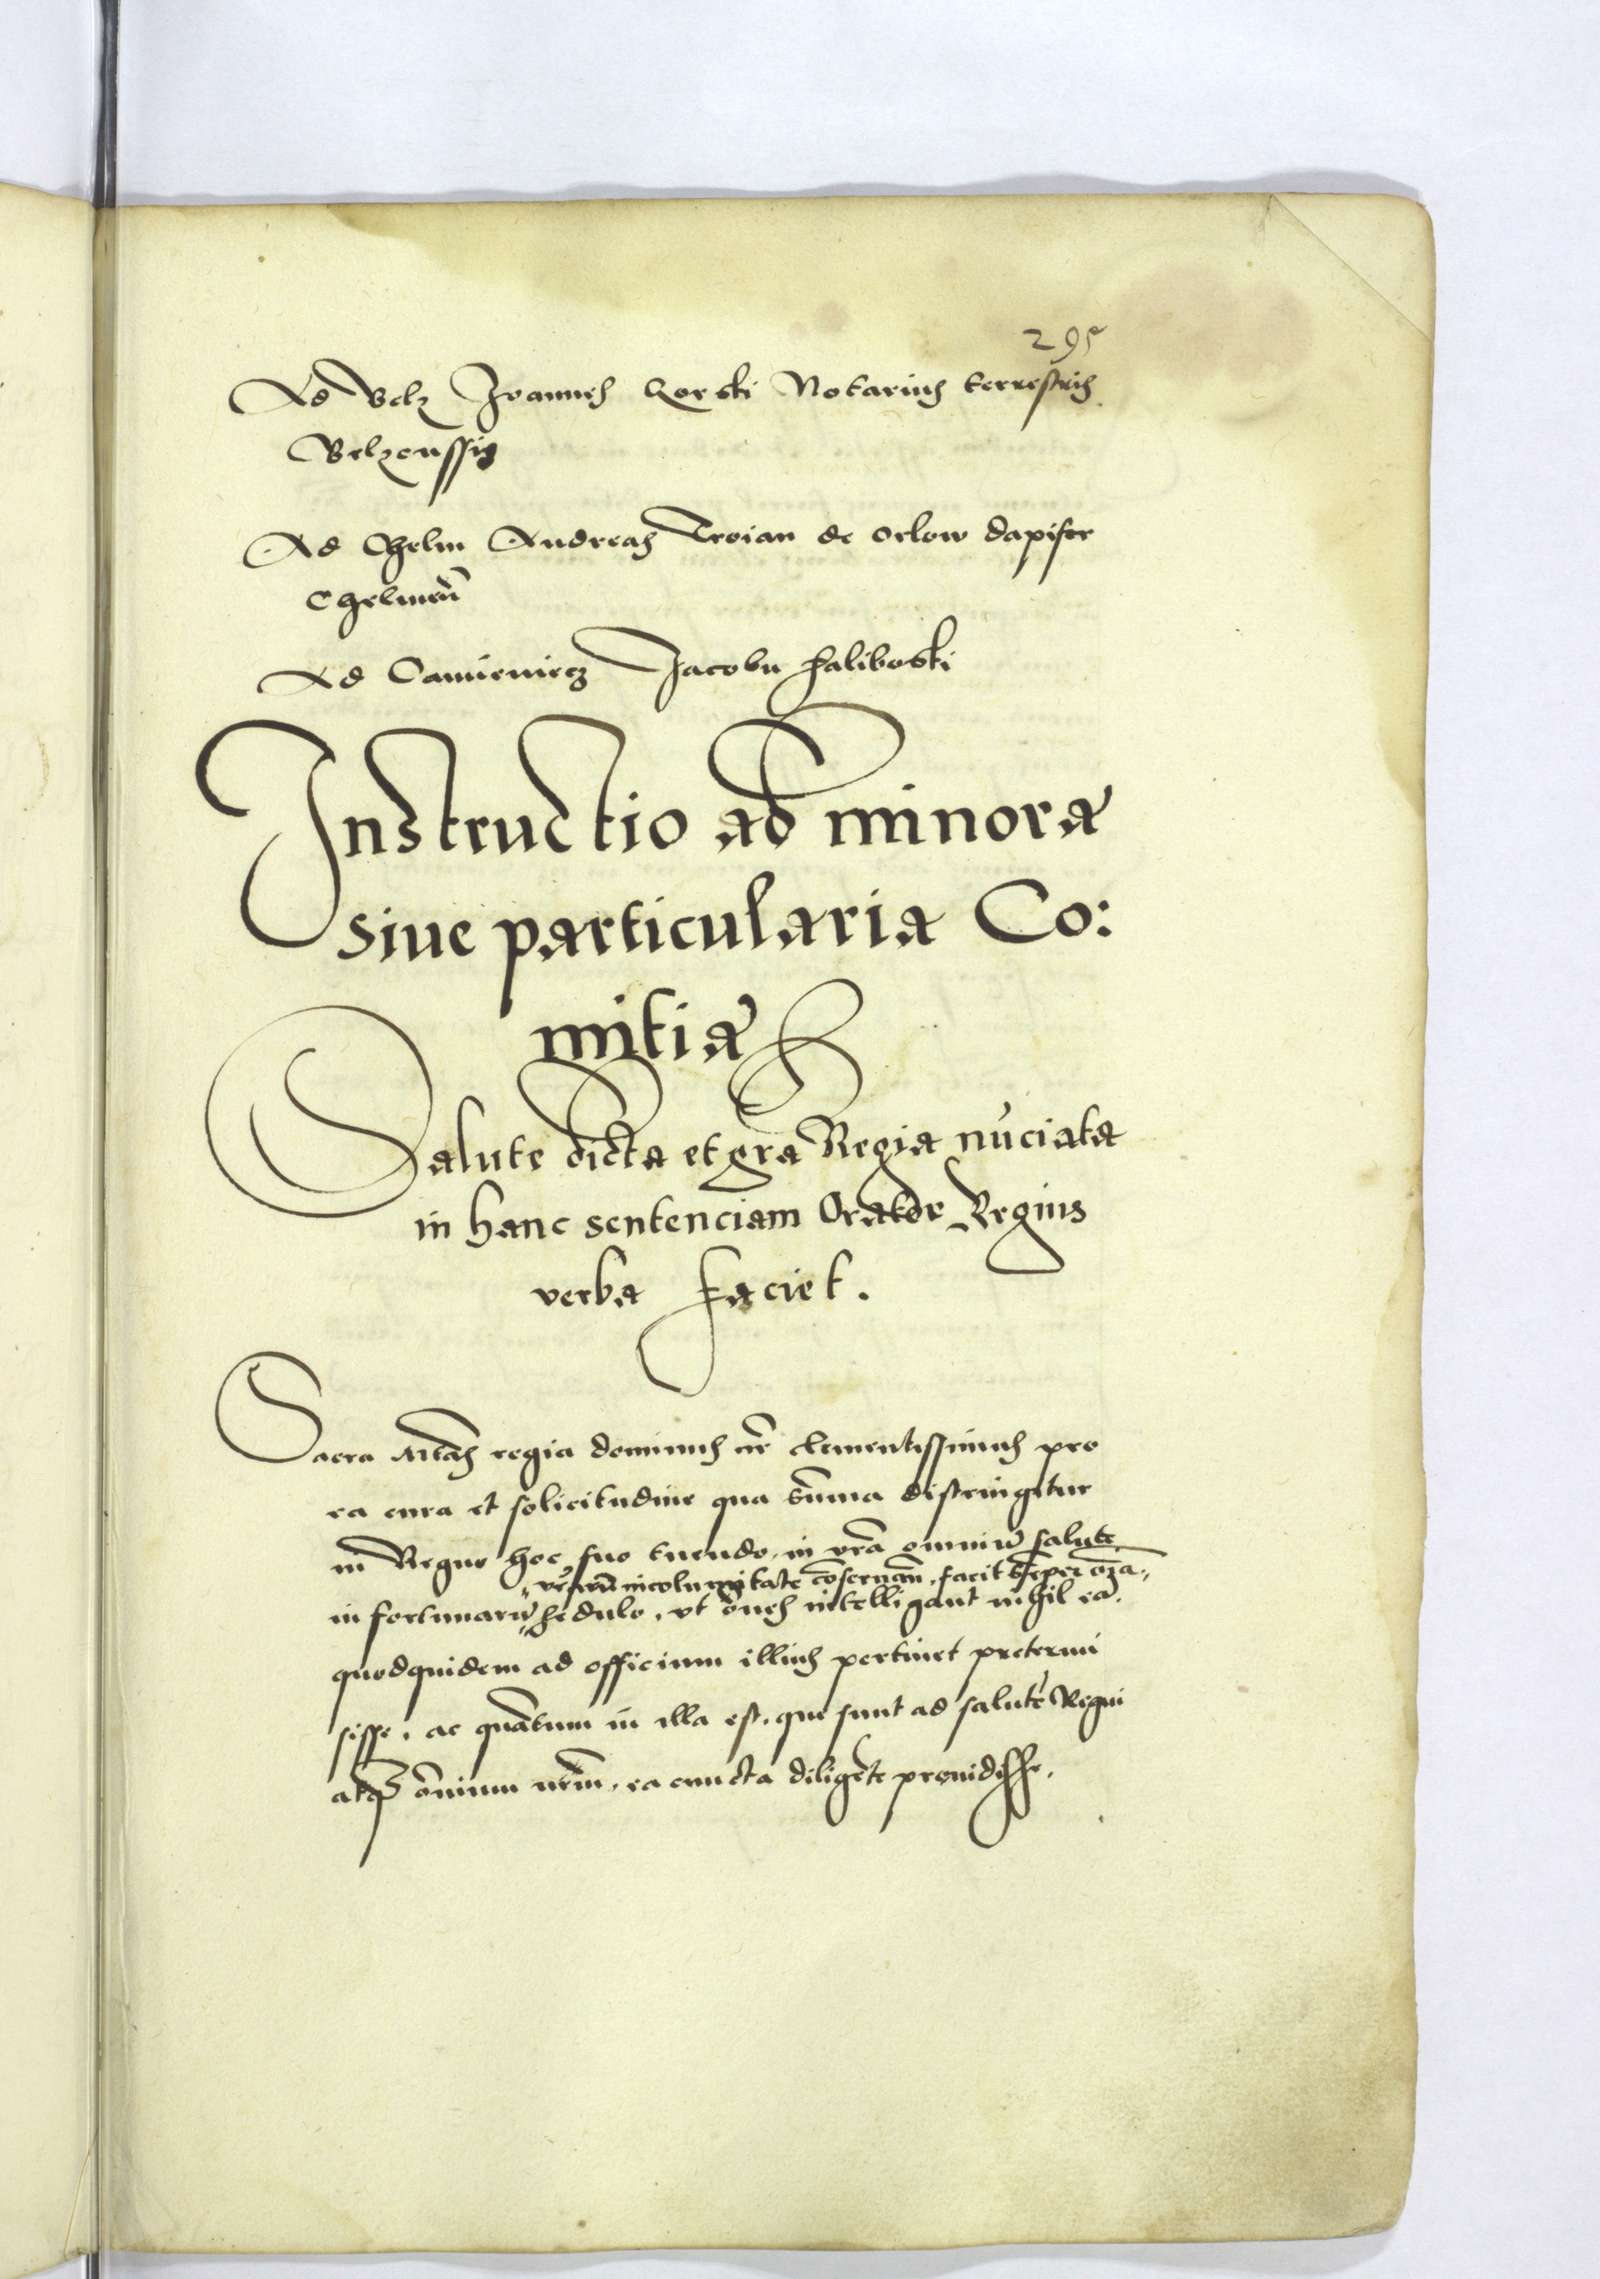 295
Ad Belz Joannes Gorski Notarius terrestris
Belzenssis
Ad Chelm Andreas Troian de Orlow dapifer
Chelmen̄
Ad Camieniecz Jacobu
Instructio ad minora
siue particularia Co:
mitia
Salute dicta et gr̄a Regia nūciata
in hanc sentenciam Orator Regius
verba faciet.
Sacra Mtās regia dominus nr̄ clementissimus pro
ea cura et solicitudine qua sūma distringitur
in Regno hoc suo tuendo, in vrā omniū salute
vr̄arū incolumitate cōseruan̄, facit semper oīa,
in fortunarū sedulo, vt ōnes intelligant nihil eā,
quodquidem ad officium illius pertinet pretermi
sisse, ac quātum in illa est, que sunt ad salutē Regni
atq̄ ōnium vr̄m, ea cuncta diligēte prouidisse.